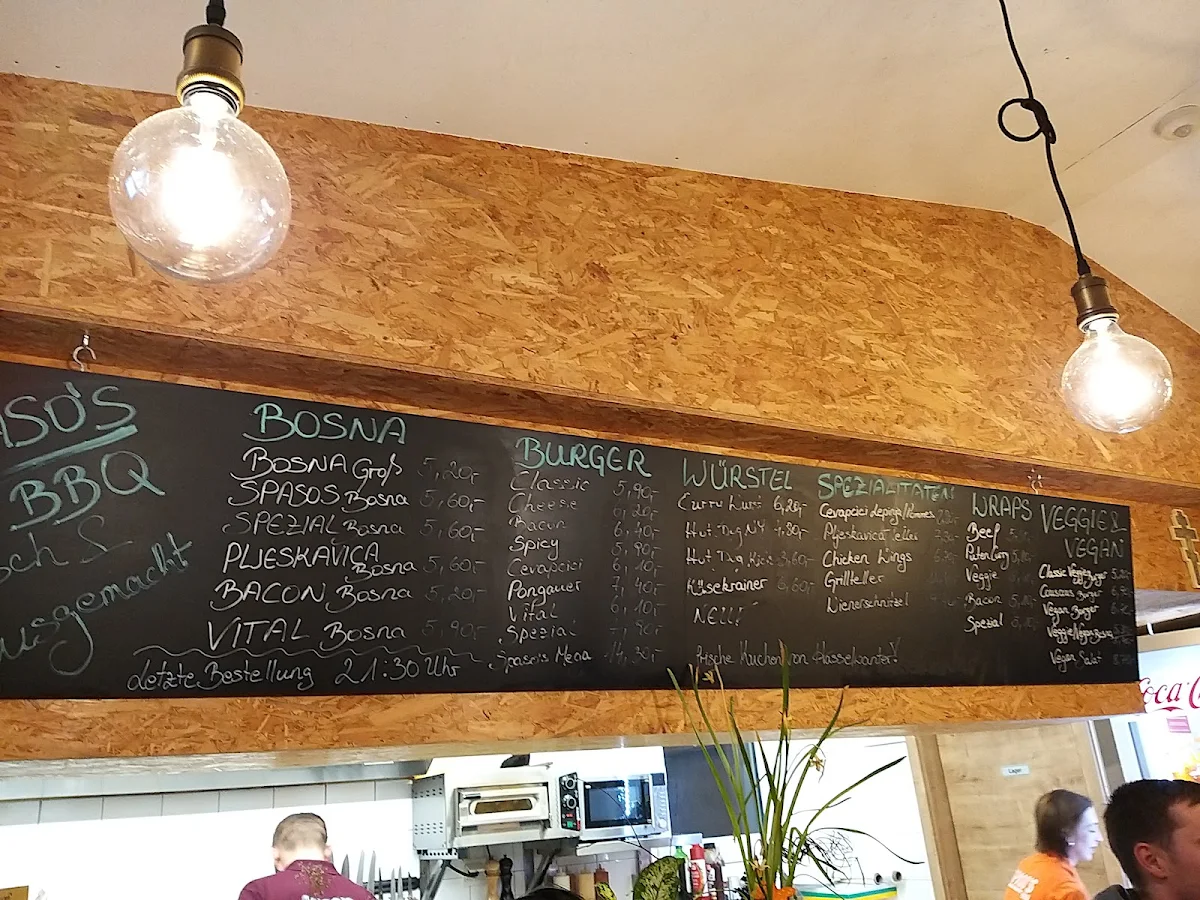 ASO'S
BBQ
sch &
ausgemacht
BOSNA
BOSNA Groß 5,20,-
SPASOS Bosna 5,60,-
SPEZIAL Bosna 5,60,-
PLJESKAVICA Bosna 5,60,-
BACON Bosna 5,20,-
VITAL Bosna 5,90,-
Letzte Bestellung 21:30 Uhr
BURGER
Classic 5,90,-
Cheese 6,20,-
Bacon 6,40,-
Spicy 5,90,-
Cevapcici 6,10,-
Pongauer 7,40,-
Vital 6,10,-
Spezial 7,90,-
Spaso's Mega 14,30,-
WÜRSTEL
Curry Wurst 6,20,-
Hot Dog NY 4,80,-
Hot Dog 3,60,-
Käsekrainer
NEU!
frische Kuchen von
SPEZIALITÄTEN
Cevapcici Lepinja/Pommes
Pljeskavica Teller
Chicken Wings
Grillteller
Wienerschnitzel
WRAPS
Beef
Puten Curry
Veggie
Bacon
Spezial
VEGGIE &
VEGAN
Classic Veggieburger
Couscous Burger
Vegan Burger
Veggie/Vegan Bosna
Vegan Salat
Coca C
Lager